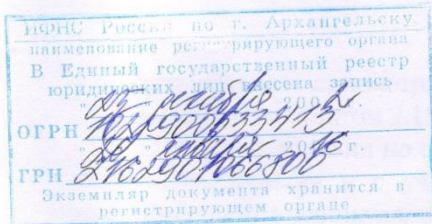 ИФНС России по г. Архангельску
наименование регистрирующего органа
В Единый государственный реестр
юридических лиц внесена запись
"25" декабря 2002 г.
ОГРН 1022900533413
января 2016 г.
ГРН 2162901066800
Экземпляр документа хранится в
регистрирующем органе